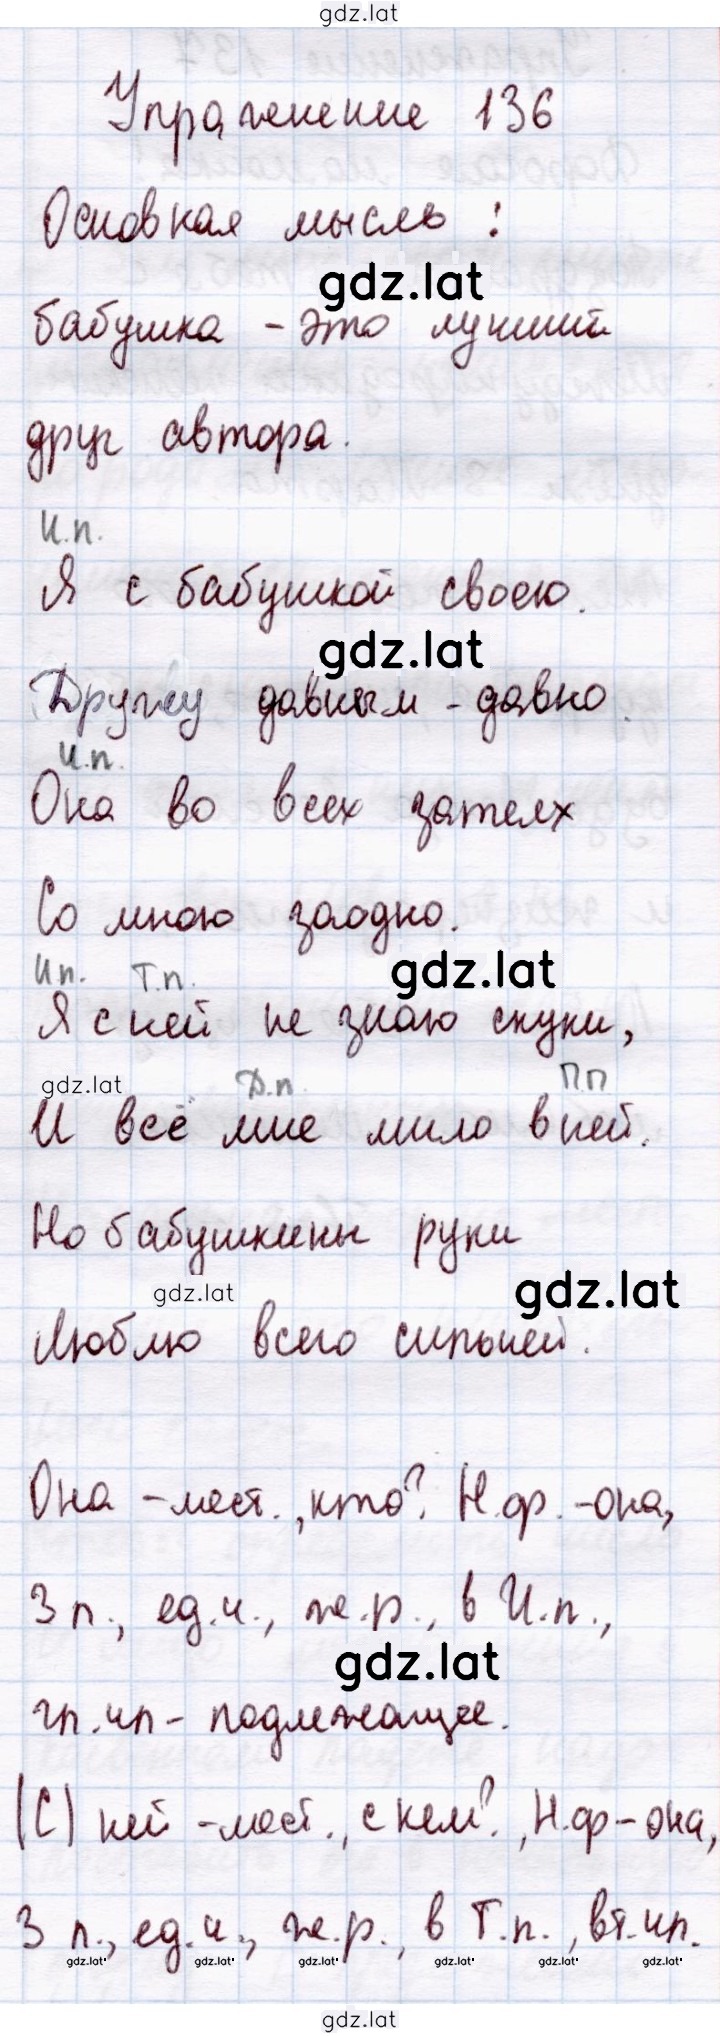 gdz.lat
Упражнение 136
Основная мысль:
gdz.lat
бабушка - это лучший
друг автора.
И.п.
Я с бабушкой своею.
gdz.lat
Дружу давным-давно.
И.п.
Она во всех затеях
Со мною заодно.
И.п. Т.п.
gdz.lat
Я с ней не знаю скуки,
gdz.lat Д.п. П.п
И всё мне мило в ней.
Но бабушкины руки
gdz.lat gdz.lat
Люблю всего сильней.
Она - мест., кто? Н.ф. - она,
3 л., ед.ч., ж.р., в И.п.,
gdz.lat
гл.чл - подлежащее.
(С) ней - мест., с кем?, Н.ф - она,
3 л., ед.ч., ж.р., в Т.п., вт.чл.
gdz.lat gdz.lat gdz.lat gdz.lat gdz.lat gdz.lat
gdz.lat